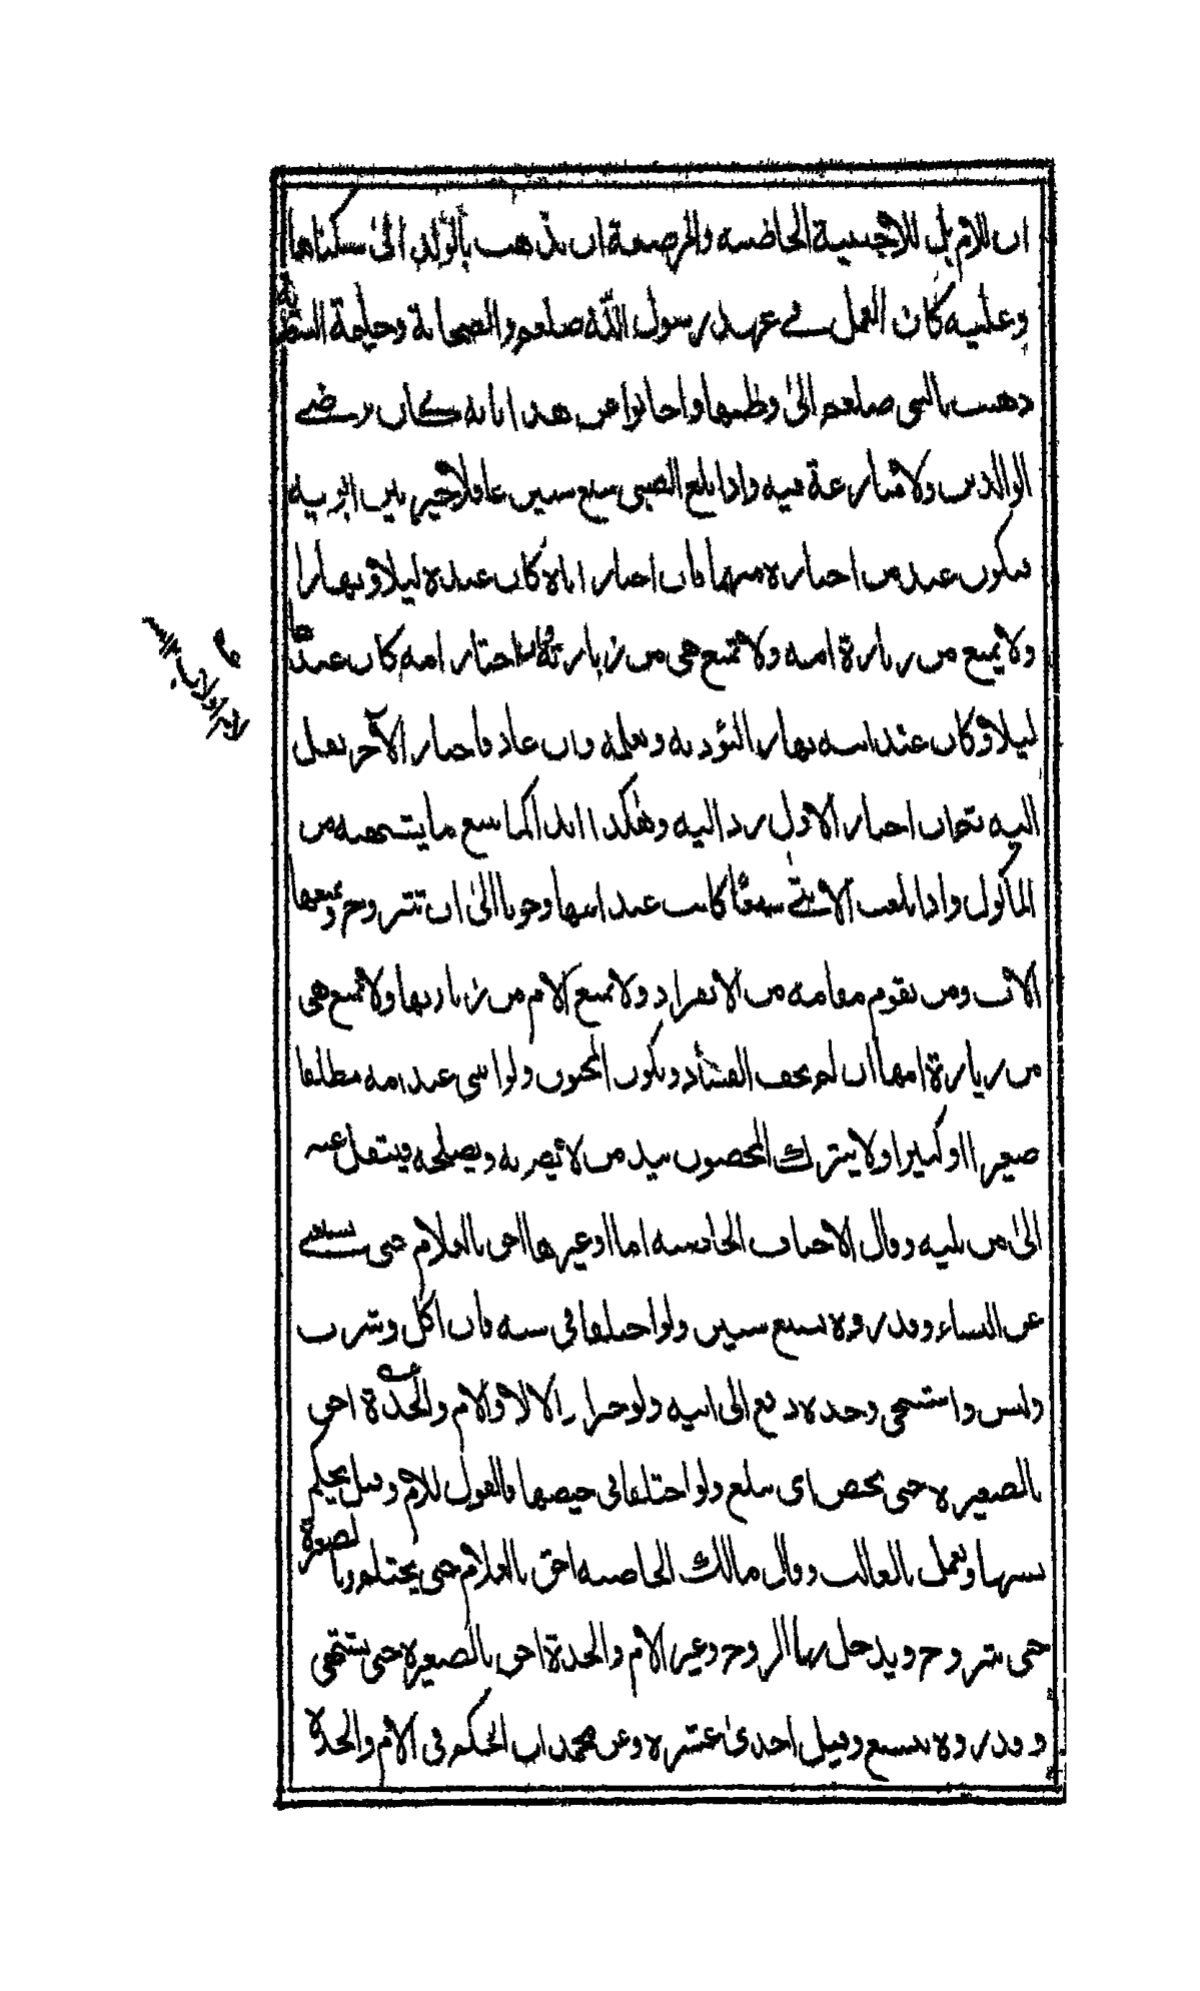 ان للام بل للاجنبية الحاضنه والمرضعة ان تذهب بالولد الى سكناها
وعليه كان العمل فے عهد رسول الله صلعم والصحابة وحليمة السعديه
ذهبت بالنبي صلعم الى وطنها واجابوا عن هذا بانه كان برضے
الوالدين ولا منازعة فيه واذا بلغ الصبي سبع سنين عاقلا خير بين ابويه
فيكون عند من اختاره منهما فان اختار اباه كان عنده ليلا ونهارا
ولا يمنع من زيارة امه ولا تمنع هي من زيارته وان اختار امه كان عندها
ليلا وكان عند ابيه نهارا ليؤدبه ويعلمه وان عاد فاختار الآخر نقل
اليه ثم ان اختار الاول رد اليه وهكذا ابدا كما يتبع ما يشتهيه من
المأكول واذا بلغت الانثے سبعا كانت عند ابيها وجوبا الى ان تتزوج ويمنعها
الاب ومن يقوم مقامه من الانفراد ولا تمنع الام من زيارتها ولا تمنع هي
من زيارة امها ان لم يخف الفساد ويكون المجنون ولو انثى عند امه مطلقا
صغيرا او كبيرا ولا يترك المحضون بيد من لا يصونه ويصلحه فينتقل عنه
الى من يليه وقال الاحناف الحاضنه اما او غيرها احق بالغلام حتى يستغنے
عن النساء وقدروه بسبع سنين ولو اختلفا في سنه فان اكل وشرب
ولبس واستنجى وحده دفع الى ابيه ولو جبرا والا لا والام والجدة احق
بالصغيره حتى تحيض اى تبلغ ولو اختلفا في حيضها فالقول للام وقيل يحكم
بسنها ويعمل بالغالب وقال مالك الحاضنه احق بالغلام حتى يحتلم وبالصغيرة
حتى تتزوج ويدخل بها الزوج وغير الام والجدة احق بالصغيره حتى تشتهى
وقدروه بتسع وقيل احدى عشره وعن محمد ان الحكم في الام والجده